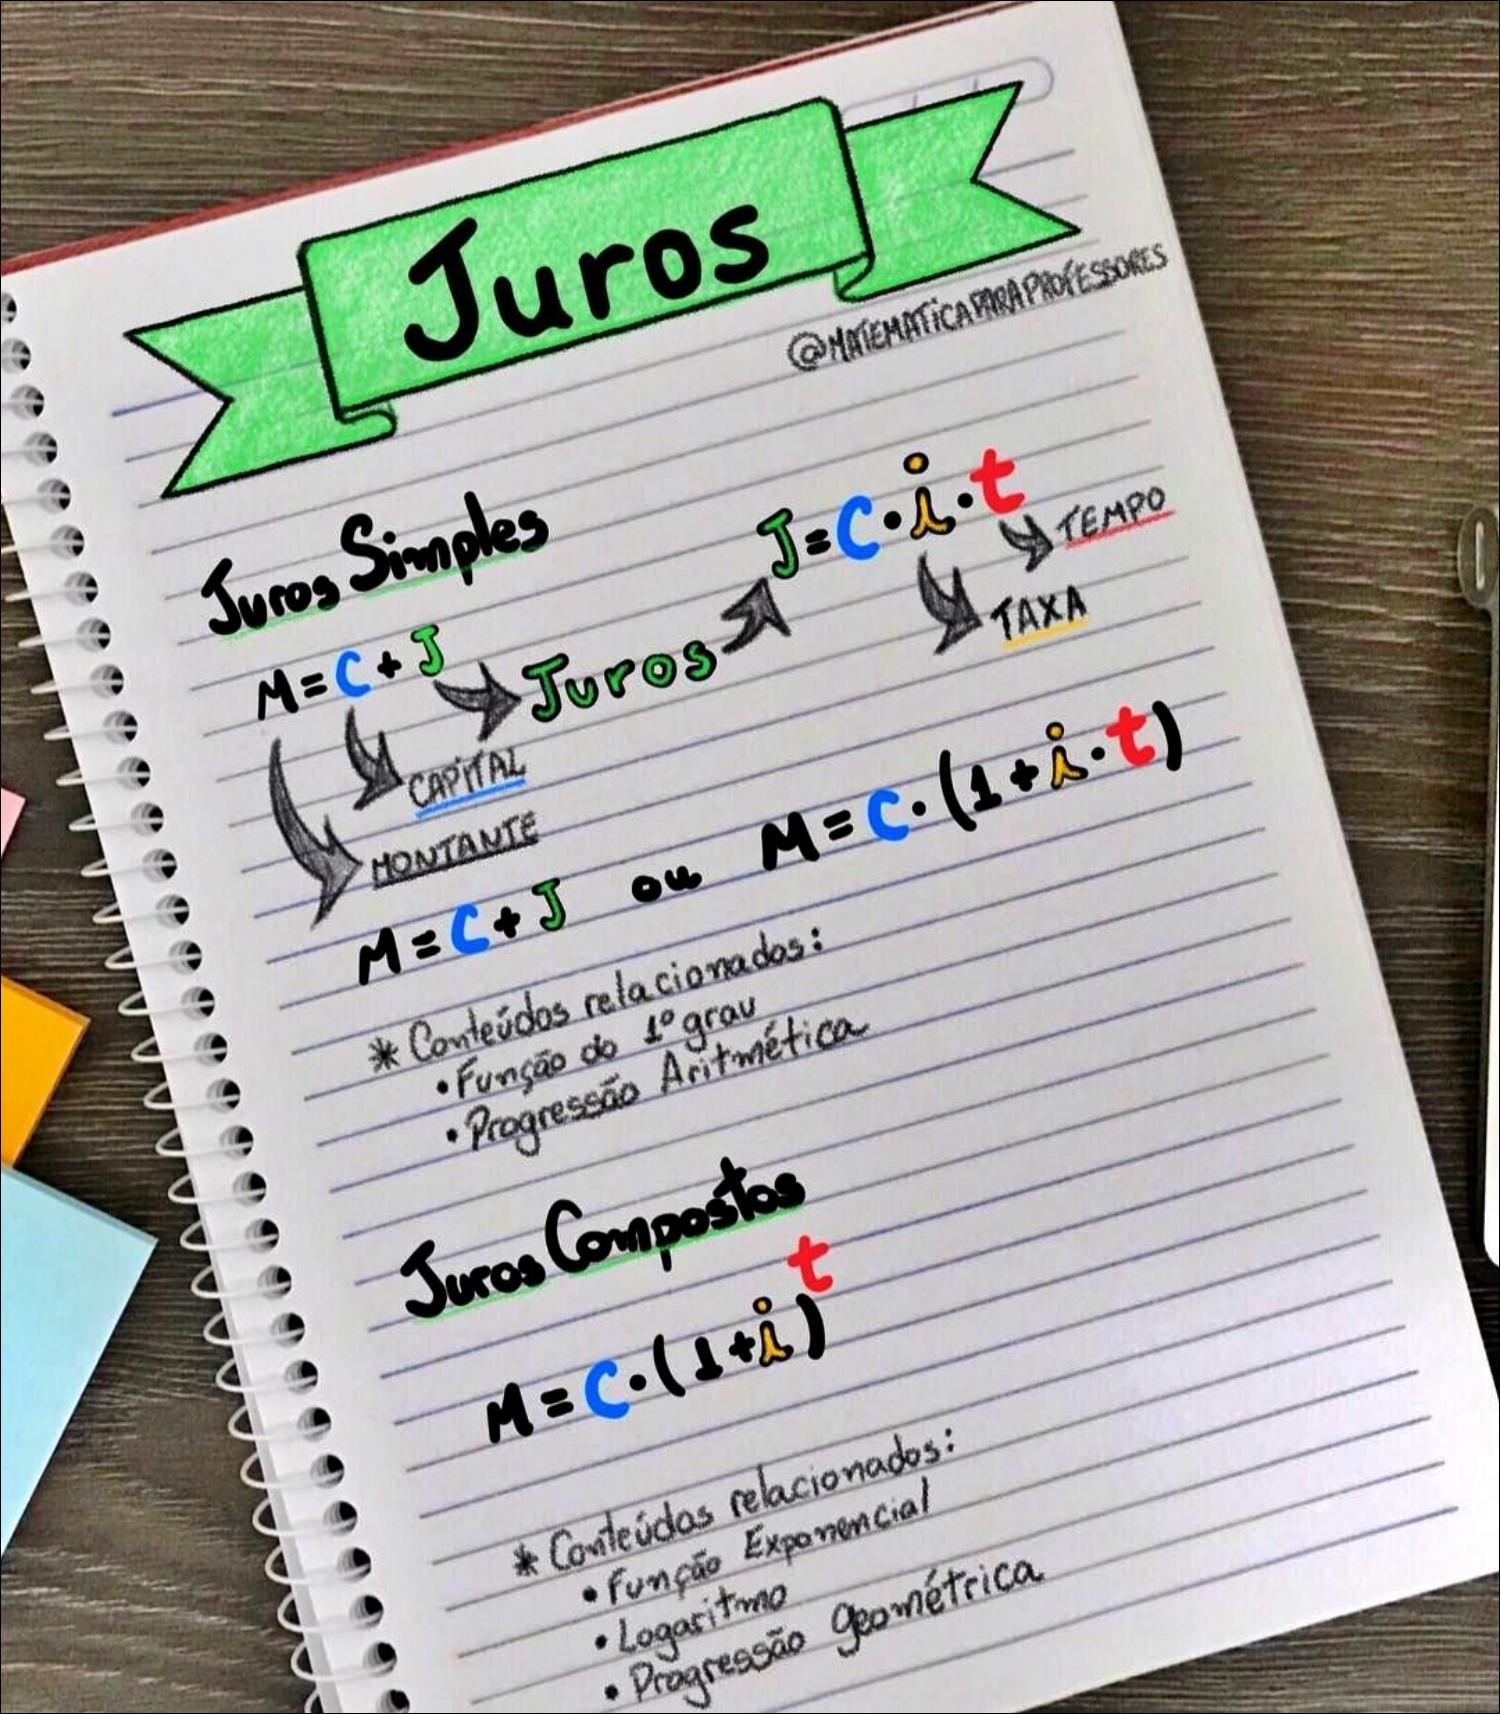 Juros
@MATEMATICAPARAPROFESSORES
Juros Simples
J=C·i·t
TEMPO
TAXA
M=C+J
Juros
CAPITAL
MONTANTE
M=C+J ou M=C·(1+i·t)
* Conteúdos relacionados:
• Função do 1º grau
• Progressão Aritmética
Juros Compostos
M=C·(1+i)^t
* Conteúdos relacionados:
• Função Exponencial
• Logaritmo
• Progressão Geométrica